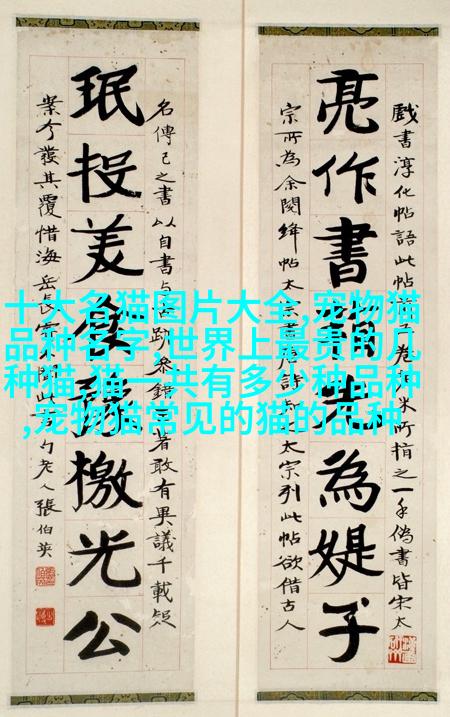 戲書淳化帖語此帖子卷米所指之一手偽書皆宋太
亮作書為媞子
宗所為余閱絳帖太唐詩知太宗列此帖欲借古人
名傳己之書以自書與跡參錯著敢有異議千載疑
珉投美豫檄光公
案今發其覆惜海岳長不聞此勺老人張伯英
十大名猫图片大全,宠物猫
品种名字,世界上最贵的几
种猫,猫一共有多少种品种
,宠物猫常见的猫的品种